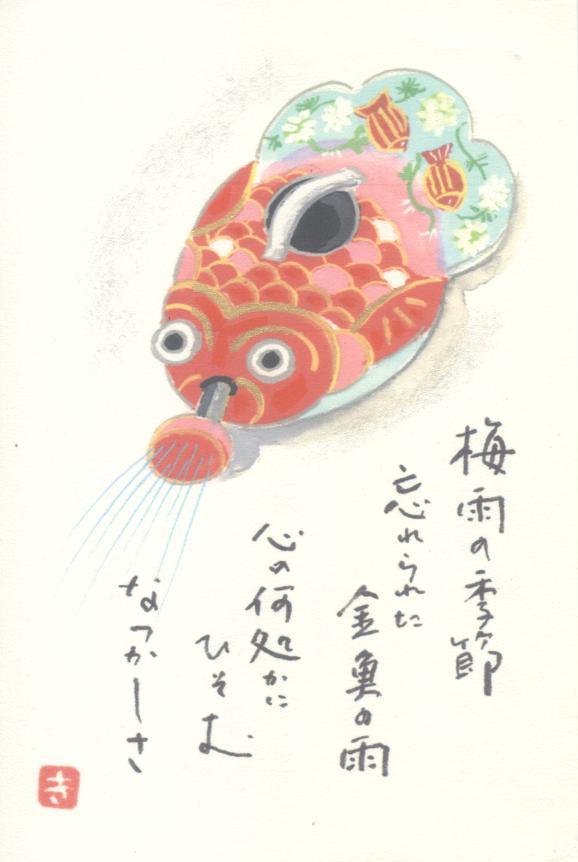 梅雨の季節
忘れられた
金魚の雨
心の何処かに
ひそむ
なつかしさ
き